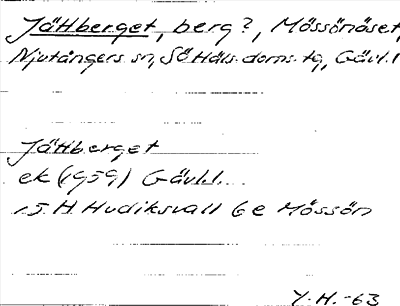 Jättberget, berg?, Mössönäset,
Njutångers sn, SöHäls. doms. tg, Gävl.l
Jättberget
ek (1959) Gävl.l.
15 H Hudiksvall 6e Mössön
Y.H.-63